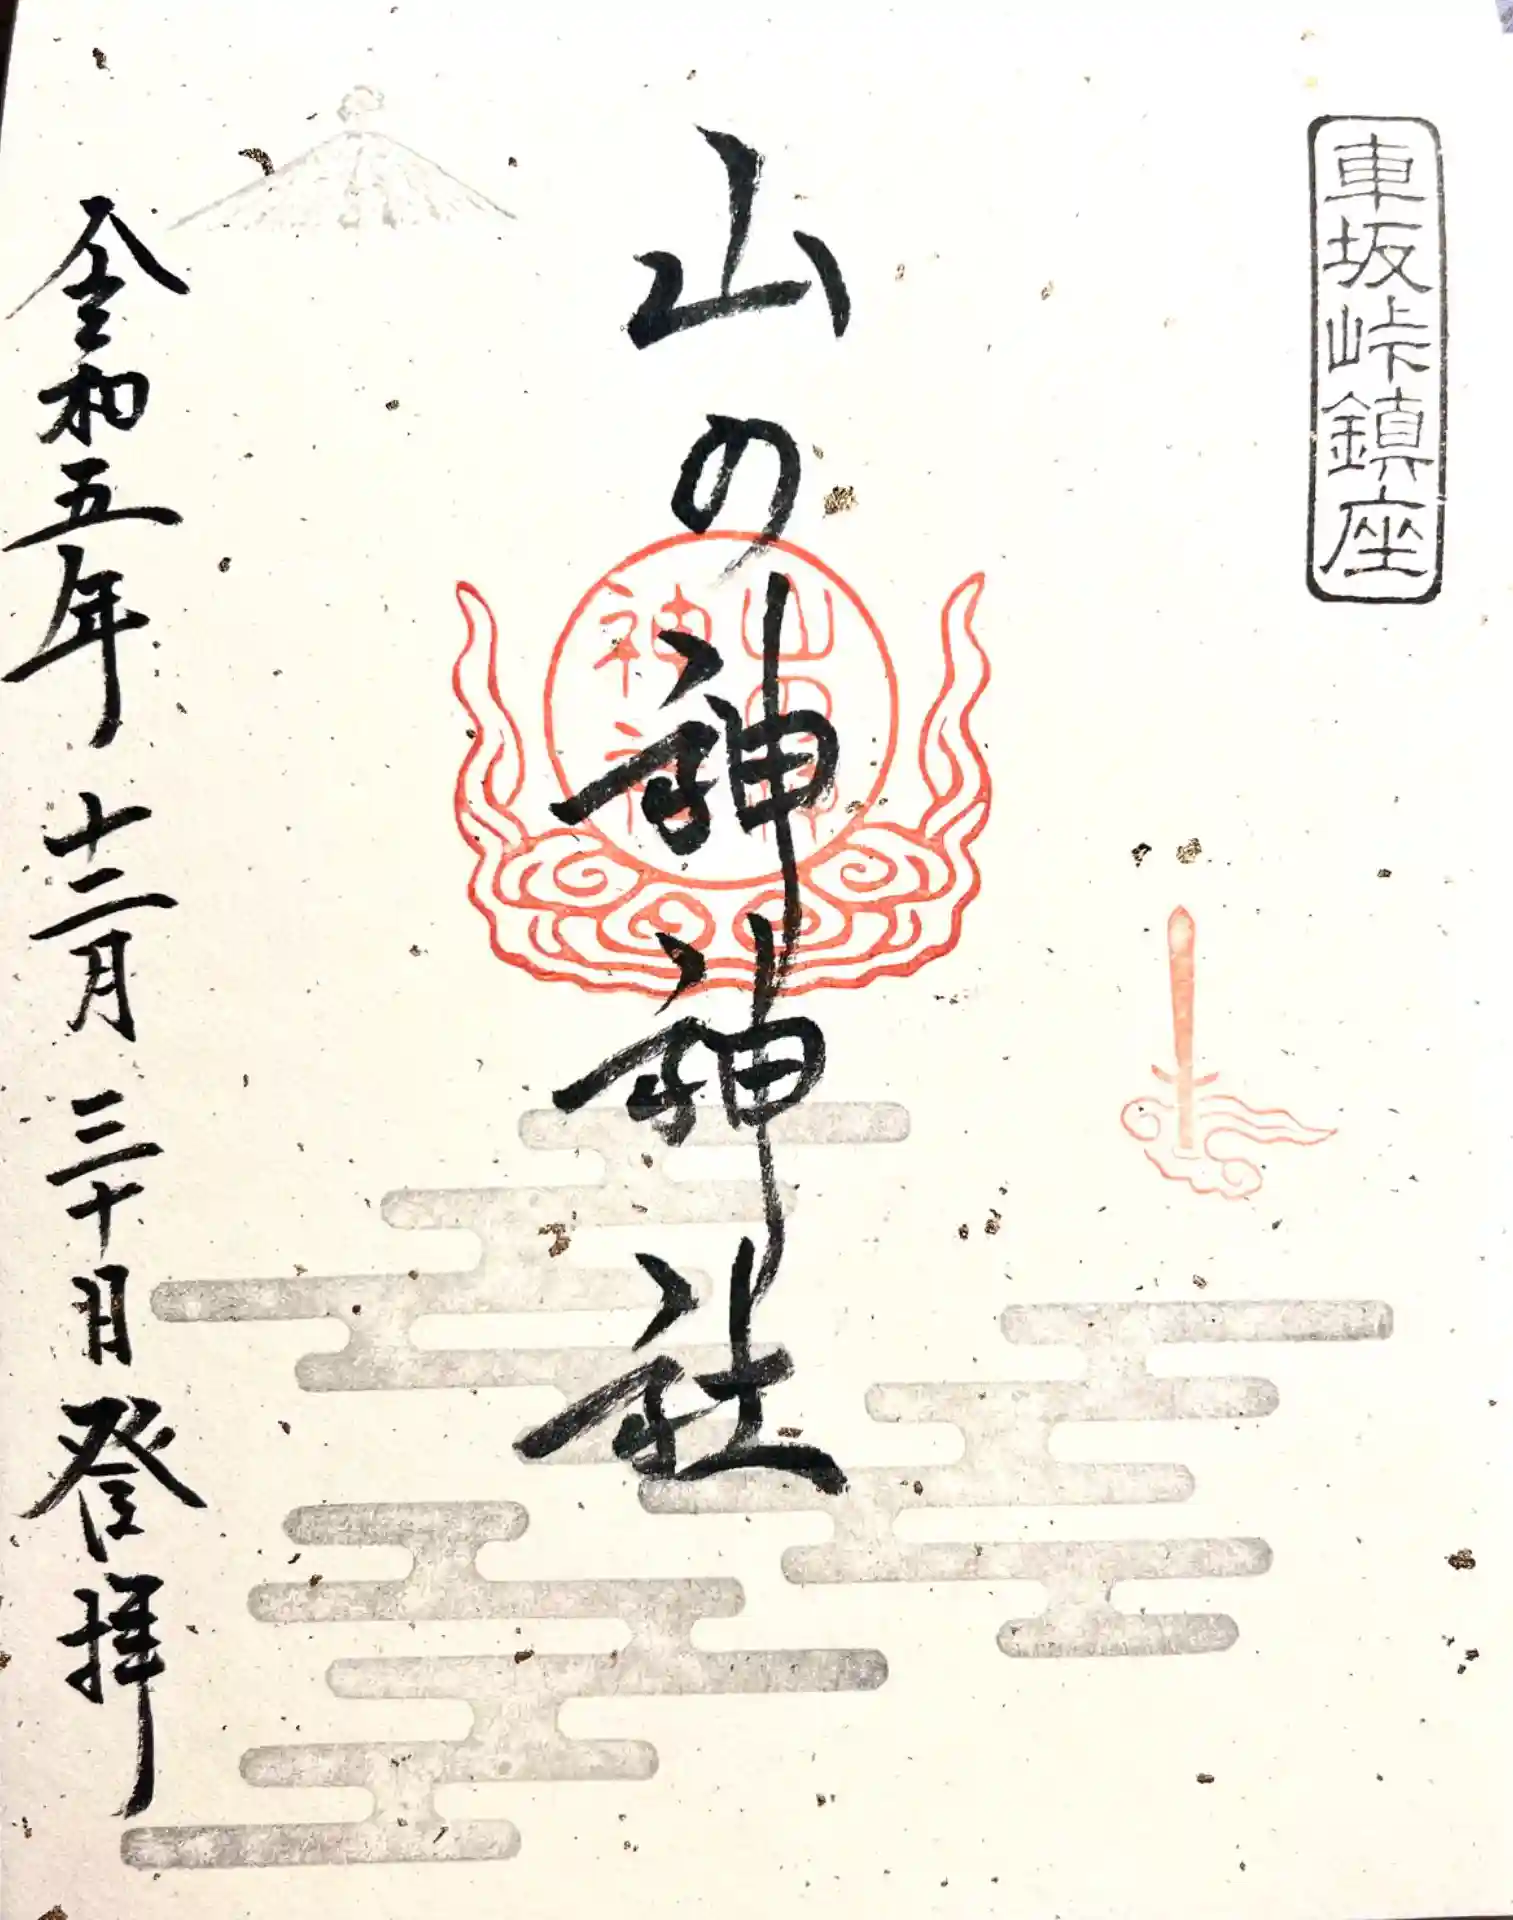 車坂峠鎮座
山の神神社
山の神
神社
令和五年 十二月 三十日 登拝